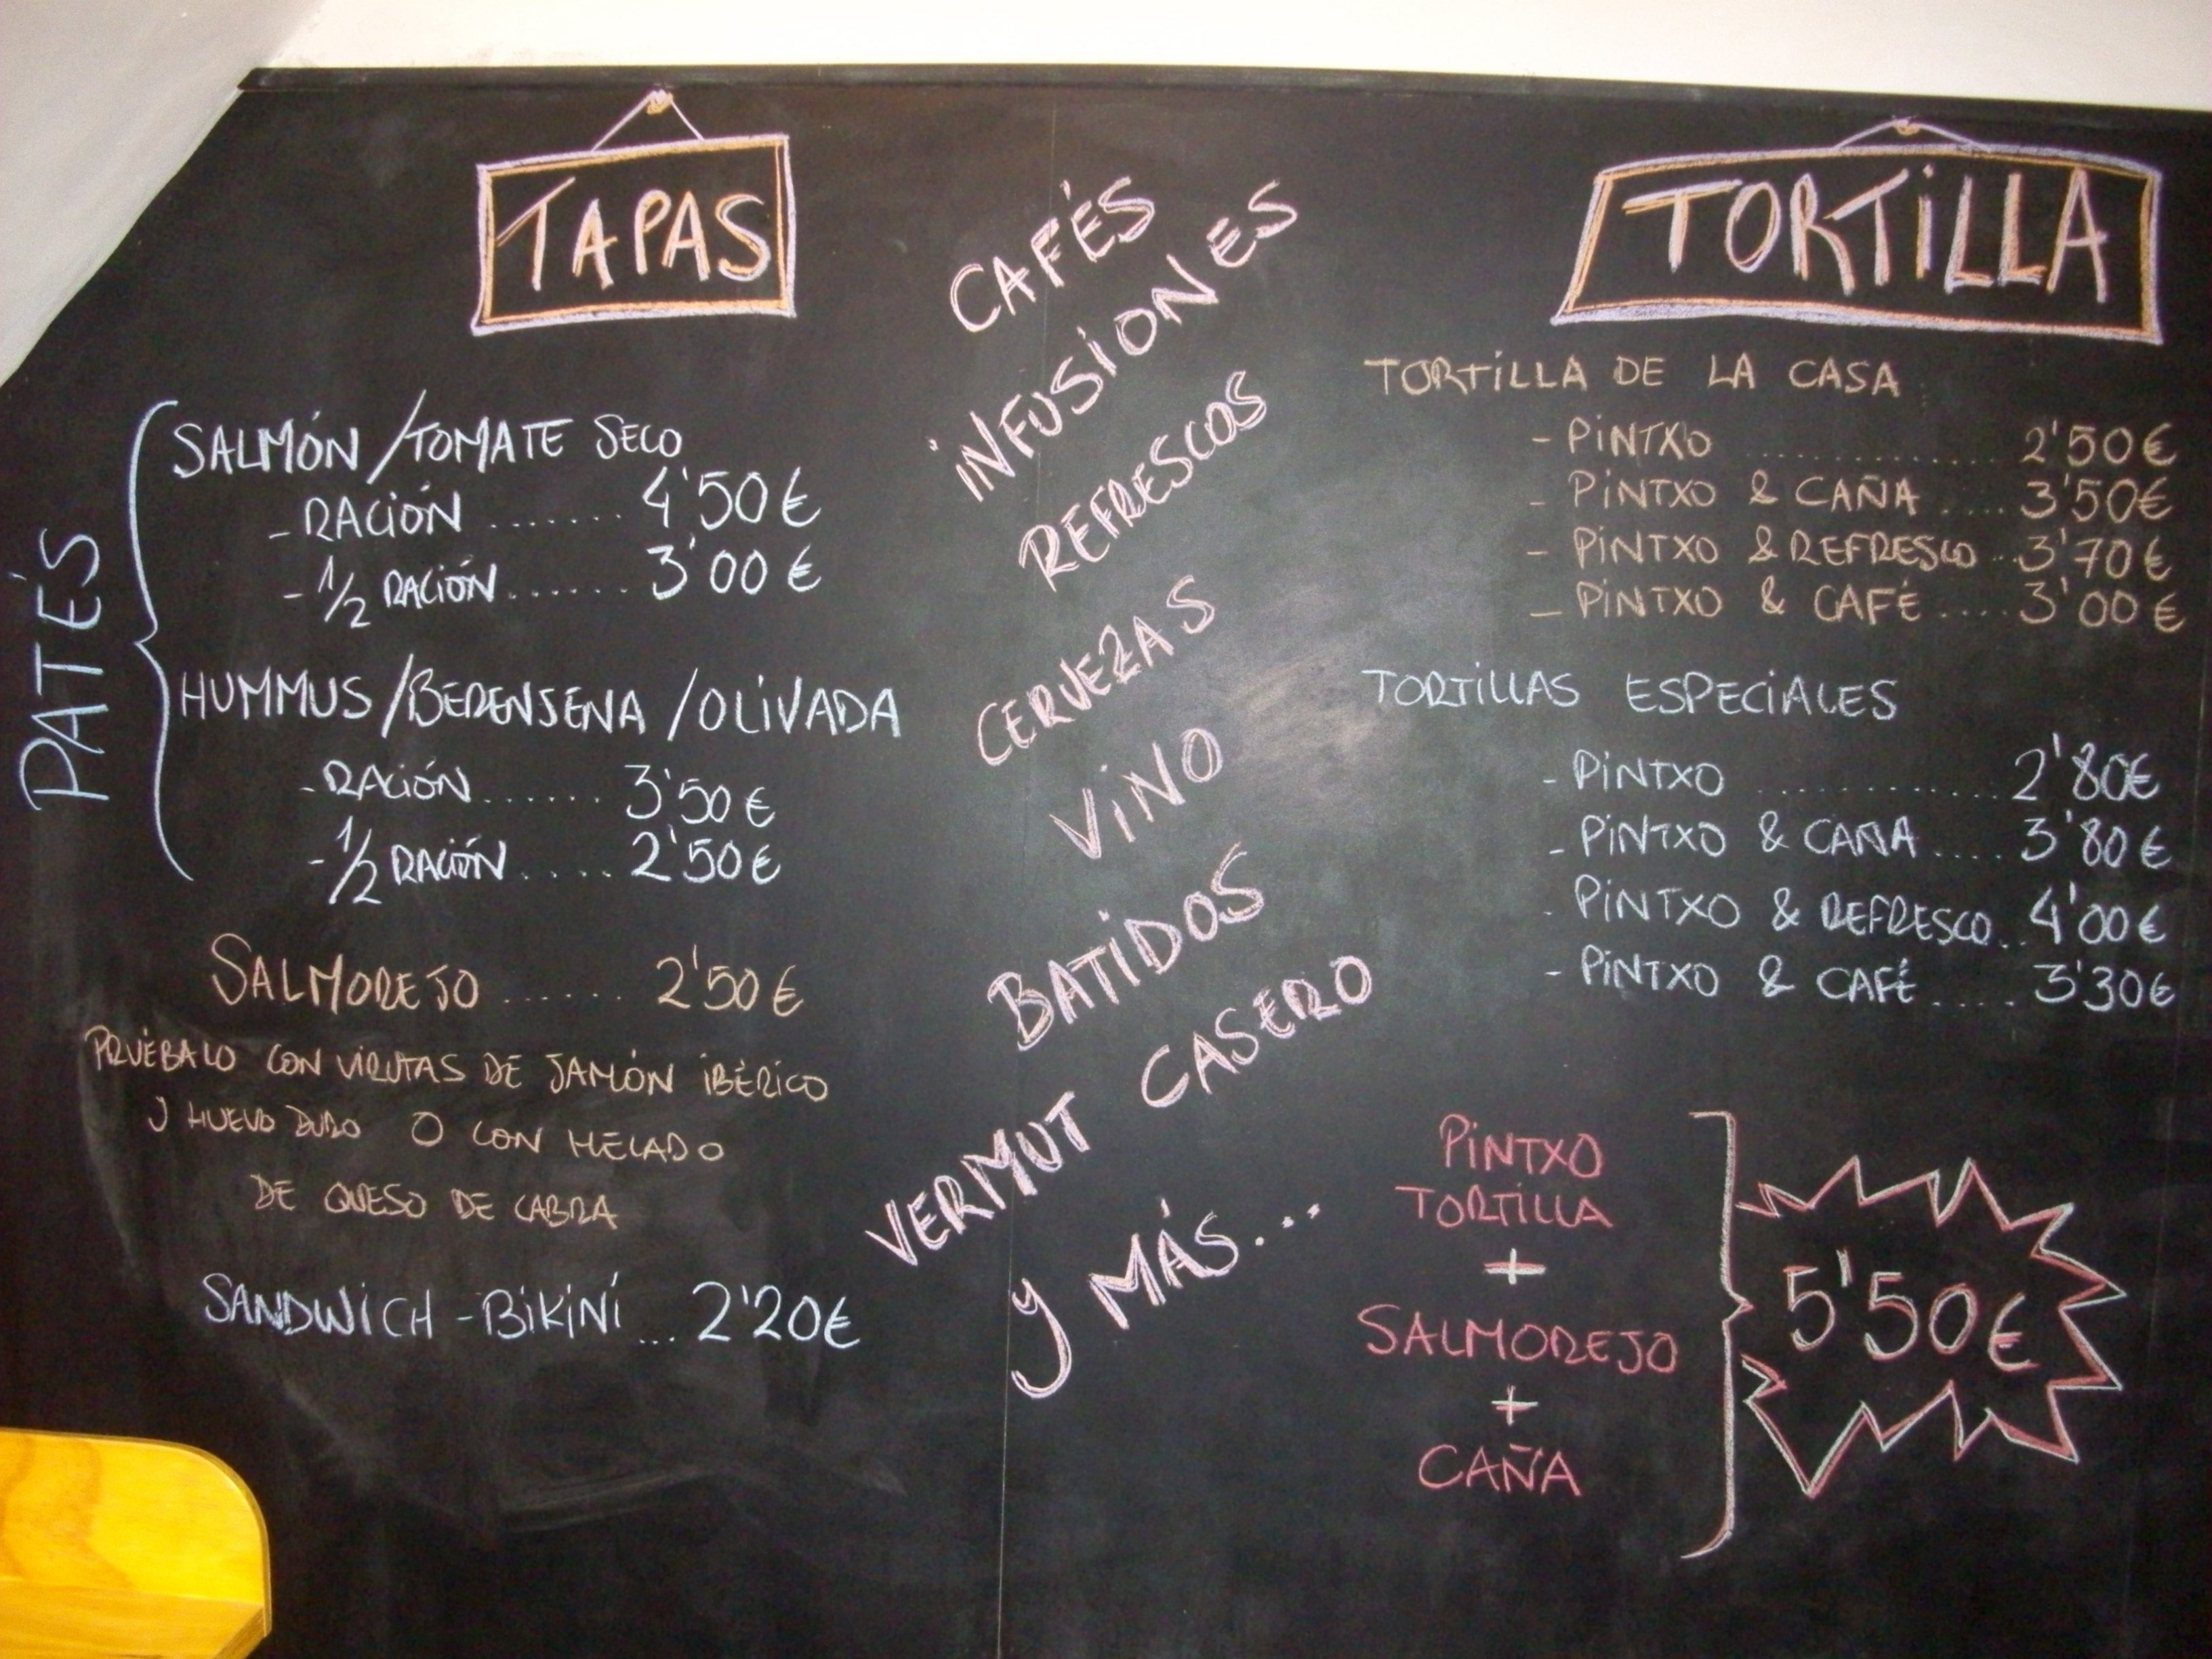 TAPAS
PATÉS
SALMÓN/TOMATE SECO
- RACIÓN ....... 4'50€
- 1/2 RACIÓN ...... 3'00€
HUMMUS/BERENJENA/OLIVADA
- RACIÓN ...... 3'50€
- 1/2 RACIÓN ..... 2'50€
SALMOREJO ...... 2'50€
PRUÉBALO CON VIRUTAS DE JAMÓN IBÉRICO
Y HUEVO DURO O CON HELADO
DE QUESO DE CABRA
SANDWICH - BIKINI ... 2'20€
CAFÉS
INFUSIONES
REFRESCOS
CERVEZAS
VINO
BATIDOS
VERMUT CASERO
Y MÁS...
TORTILLA
TORTILLA DE LA CASA
- PINTXO .............. 2'50€
- PINTXO & CAÑA .... 3'50€
- PINTXO & REFRESCO .. 3'70€
- PINTXO & CAFÉ .... 3'00€
TORTILLAS ESPECIALES
- PINTXO ............. 2'80€
- PINTXO & CAÑA .... 3'80€
- PINTXO & REFRESCO .. 4'00€
- PINTXO & CAFÉ ..... 3'30€
PINTXO
TORTILLA
+
SALMOREJO
+
CAÑA
5'50€